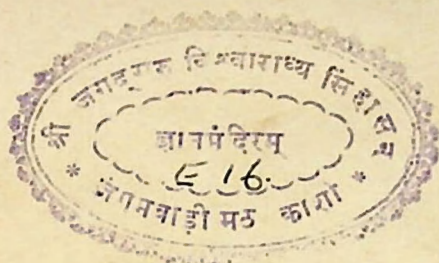 श्री जगद्गुरु विश्वाराध्य सिंहासन
ज्ञानमंदिरम्
E 16
* जंगमवाड़ी मठ काशी *